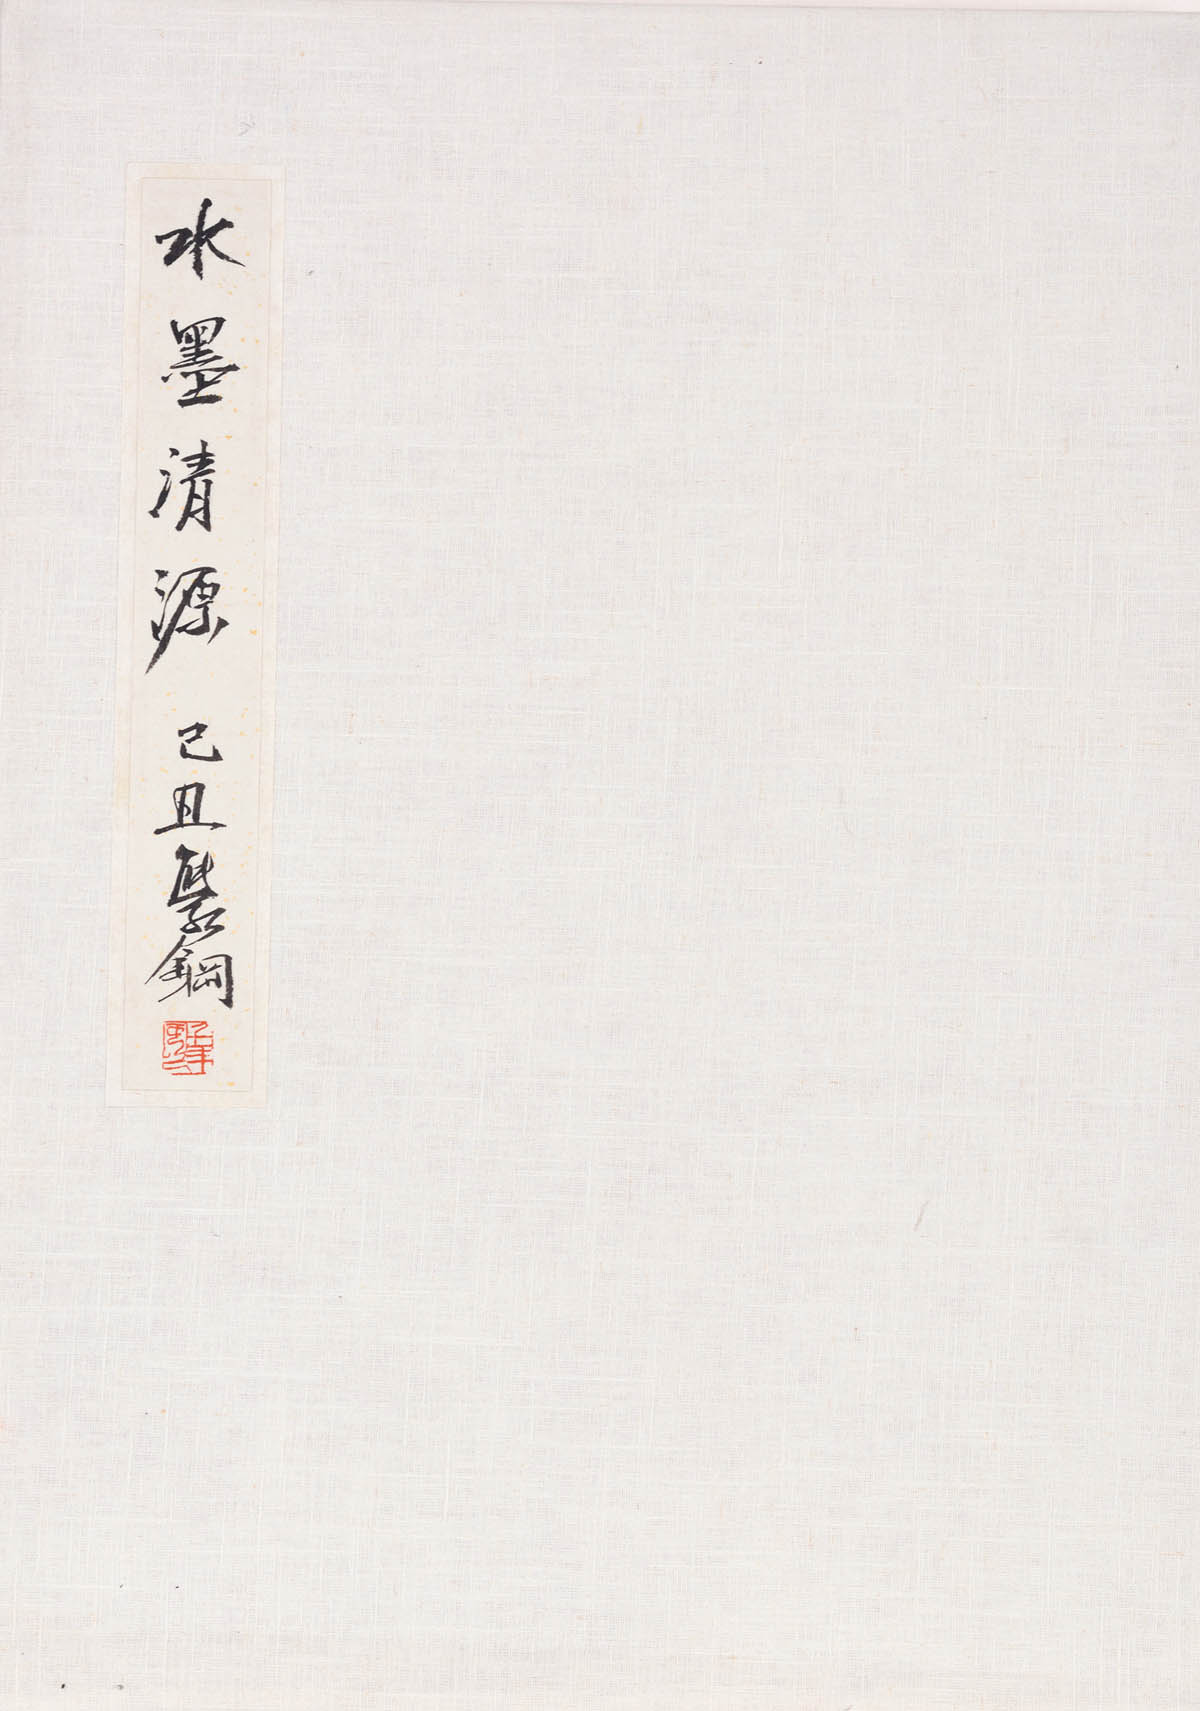 水墨清源 己丑 鋼